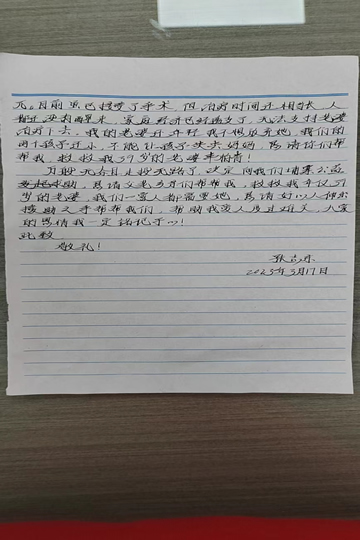 元。目前虽已接受了手术, 但治疗时间还相当长, 人
财两空, 家庭经济已经透支了, 无法支持老婆
治疗下去。我的老婆还年轻我不想放弃她, 我们的
两个孩子还小, 不能让孩子失去妈妈, 恳请你们帮
帮我, 救救我37岁的老婆
万般无奈目走投无路了, 决定向我们
求助, 恳请父老乡亲们帮帮我, 救救我年仅37
岁的老婆, 我们一家人都需要她, 恳请好心人伸出
援助之手帮帮我们, 帮助我家人度过难关, 大家
的恩情我一定铭记于心!
此致
敬礼!
2025年3月17日